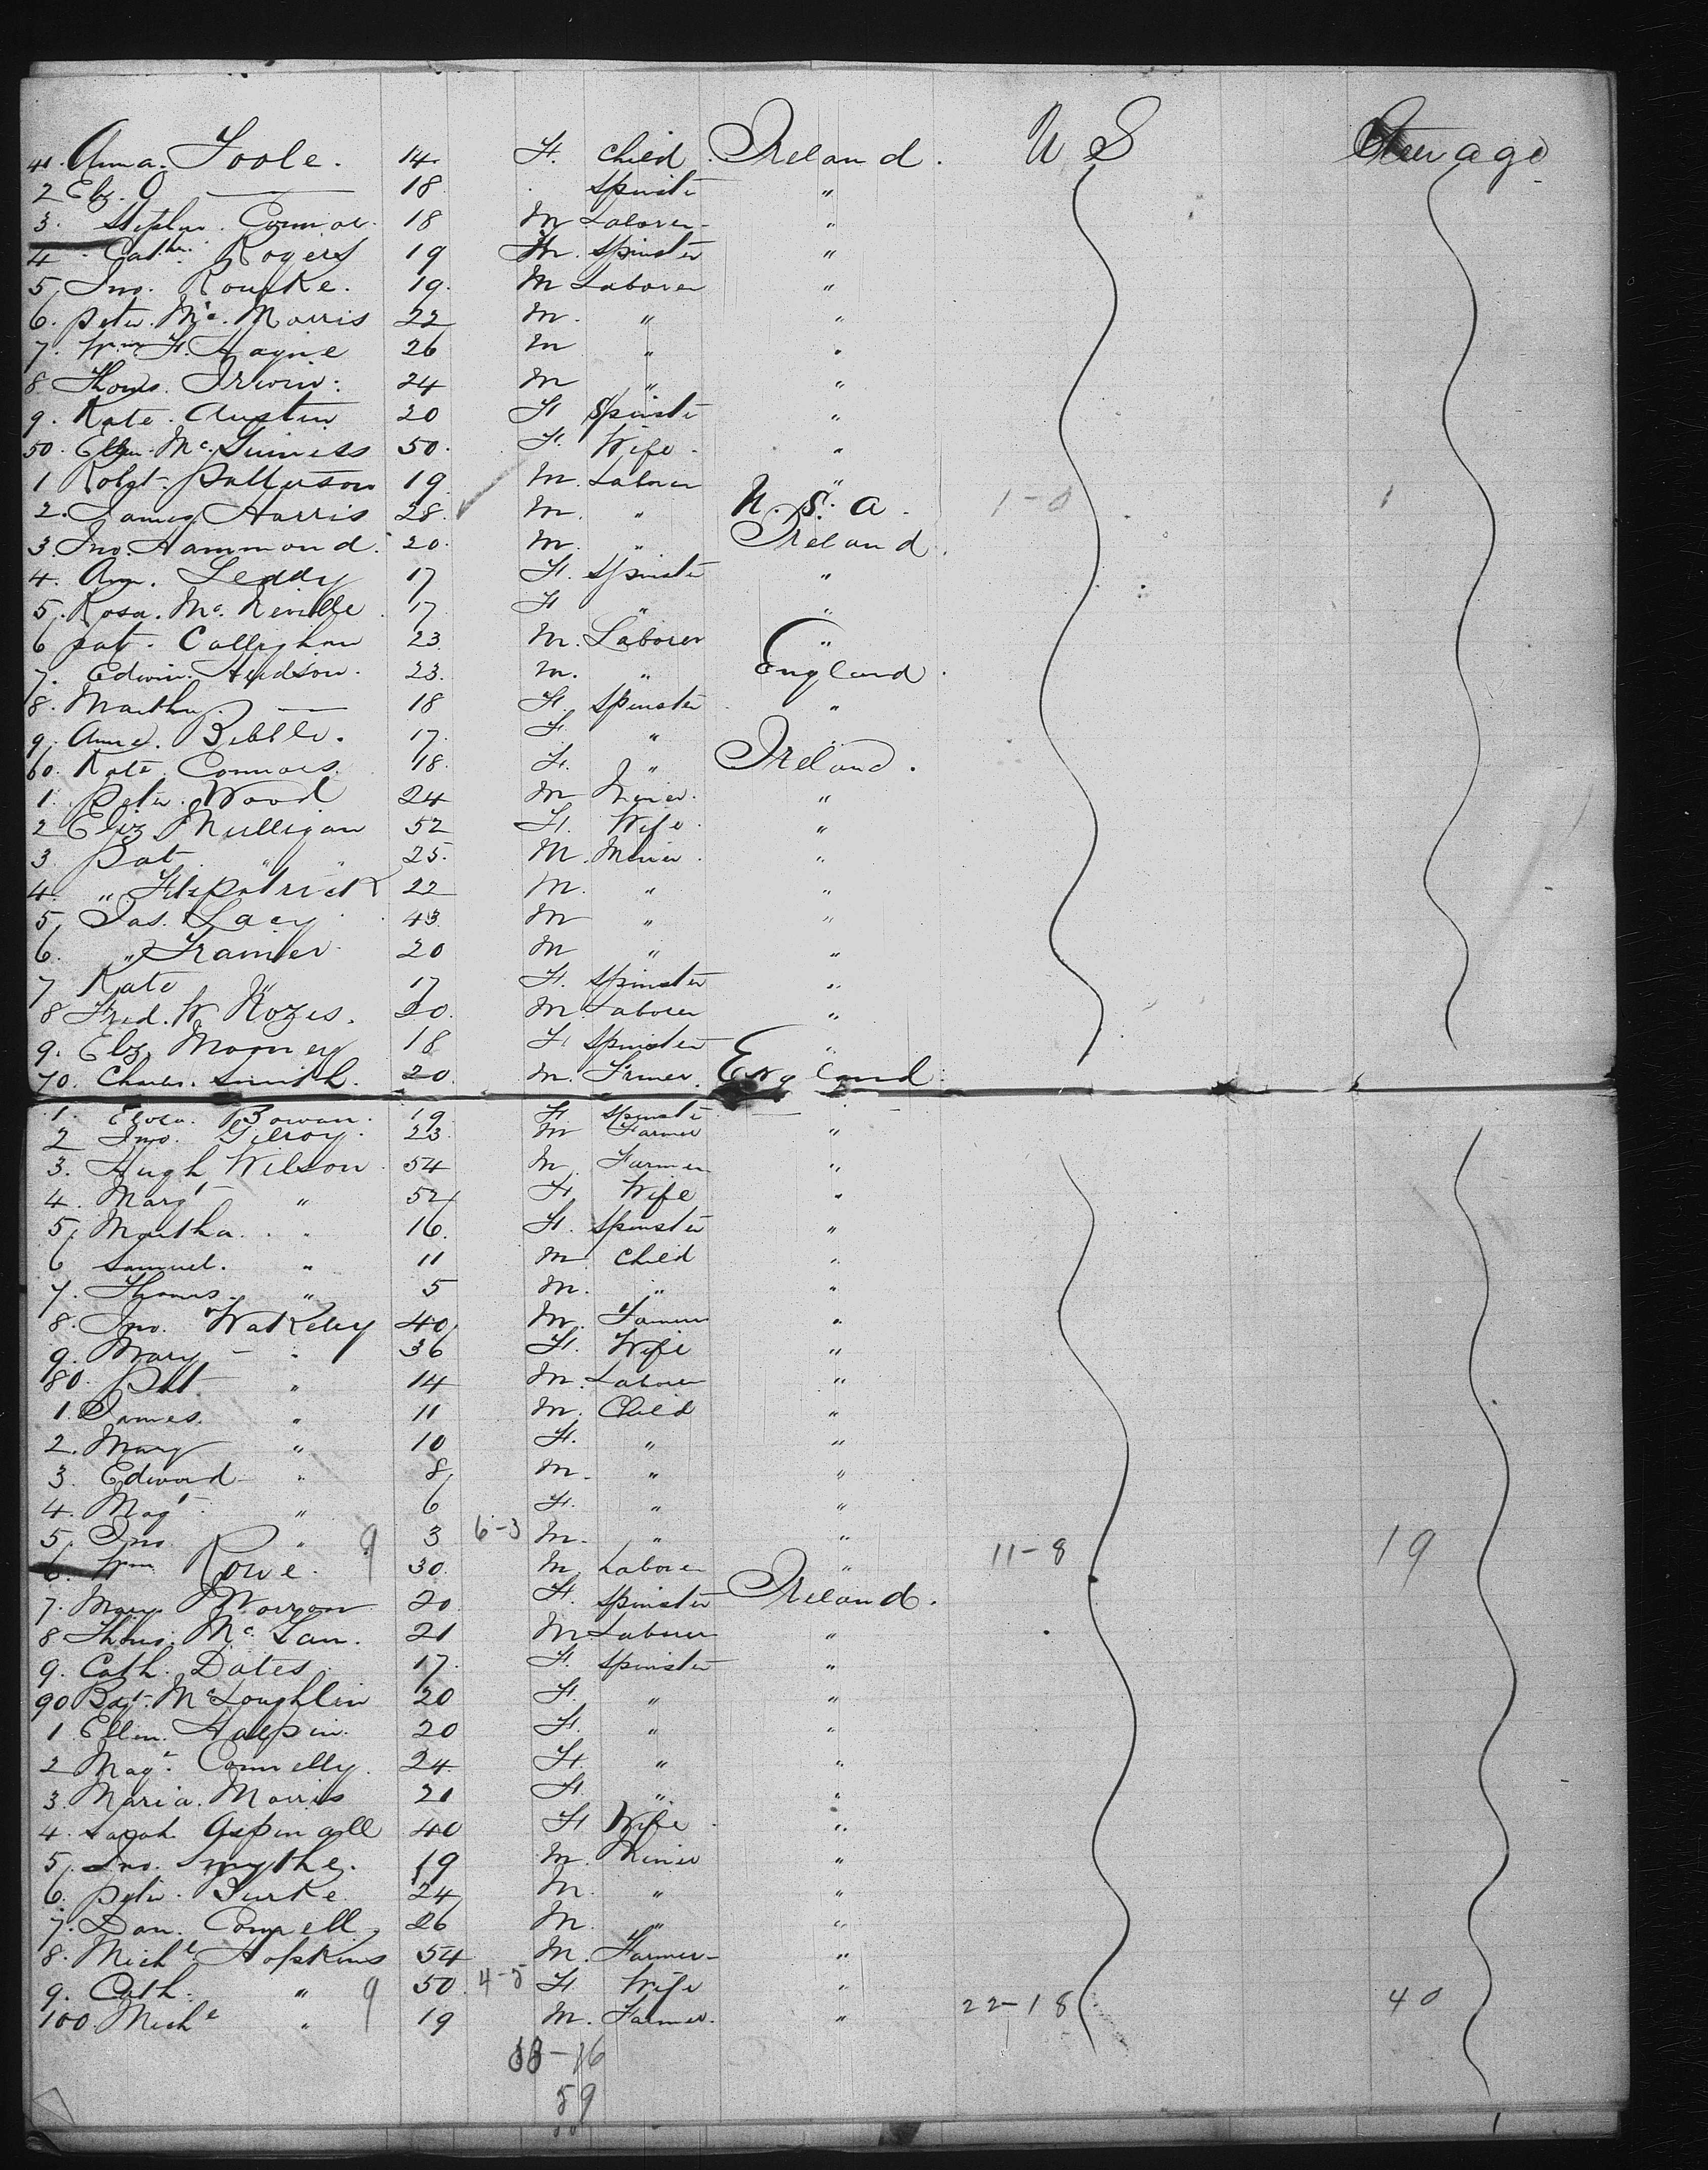 41. Anna. Toole. 14. F. Child. Ireland. U S Steerage
2 Elz. O —— 18 . Spinster "
3. Stephen. Connor. 18 M Laborer "
4 Cath. Rogers 19 F. Spinster "
5, Jno. Rourke. 19. M Laborer "
6. Peter. Mc. Morris 22 M. " "
7. Wm F. Hayne 26 M " "
8 Thoms. Irwin. 24 M " "
9. Kate. Austin 20 F Spinster "
50. Mc. Guiness 50. F. Wife. "
1 Robt. Patterson 19 M. Laborer "
2. James Harris 28. M. " U. S. A. 1-0 1
3. Jno. Hammond. 20. M. " Ireland.
4. Ann. Leddy 17 F. Spinster "
5. Rosa. Mc. Neville 17 F " "
6 Pat. Callighan 23 M. Laborer "
7. Edwin. Hudson. 23. M. " England.
8. Martha. —— 18 F. Spinster "
9. Anne. Bibble. 17. F " "
60. Kate. Connors. 18. F. " Ireland.
1. Peter. Wood 24 M Miner. "
2 Eliz Mulligan 52 F. Wife. "
3. Pat " " 25. M. Miner. "
4. " Fitzpatrick 22 M. " "
5, Jas. Lacy 43 M " "
6. " Trainer 20 M " "
7 Kate " 17 F. Spinster "
8 Fred. W 20. M. Laborer "
9. Elz. Mooney 18 F. Spinster "
70. Charles. Smith. 20. M. Farmer. England.
1. Bowan. 19 F Spinster "
2 Jno. Gilroy. 23. M Farmer "
3. Hugh Wilson. 54 M. Farmer "
4. Margt " 52 F. Wife "
5, Martha. " 16. F. Spinster "
6 Samuel. " 11 M. Child "
7. Thomas. " 5 M. " "
8. Jno. Watkeley 40 M. Farmer "
9. Mary - " 36 F. Wife "
80. Pat. " 14 M. Laborer "
1. James. " 11 M. Child "
2. Mary " 10 F. " "
3. Edward " 8 M. " "
4. Magt. " 6 F. " "
5, Jno " 9 3 6-3 M. " " 11-8 19
6. Wm Rowe. 30. M. Laborer "
7. Mary. 20. F. Spinster Ireland.
8 Thoms. Mc. 21 M. Laborer "
9. Cath. Dates. 17. F. Spinster "
90 McLoughlin 20 F. " "
1 Ellen. Halpin. 20 F. " "
2 Magt. Connelly. 24 F. " "
3. Maria. Morris 21 F. " "
4. Sarah. Aspinall 40 F Wife. "
5, Jno. Smythe. 19 M. Miner "
6. Peter. Burke 24 M. " "
7. Dan. Connell. 26 M. " "
8. Michl Hopkins 54 M. Farmer "
9. Cath. " 9 50. 4-5 F. Wife "
100. Michl " 19 M. Farmer. " 22-18 40
-16
59